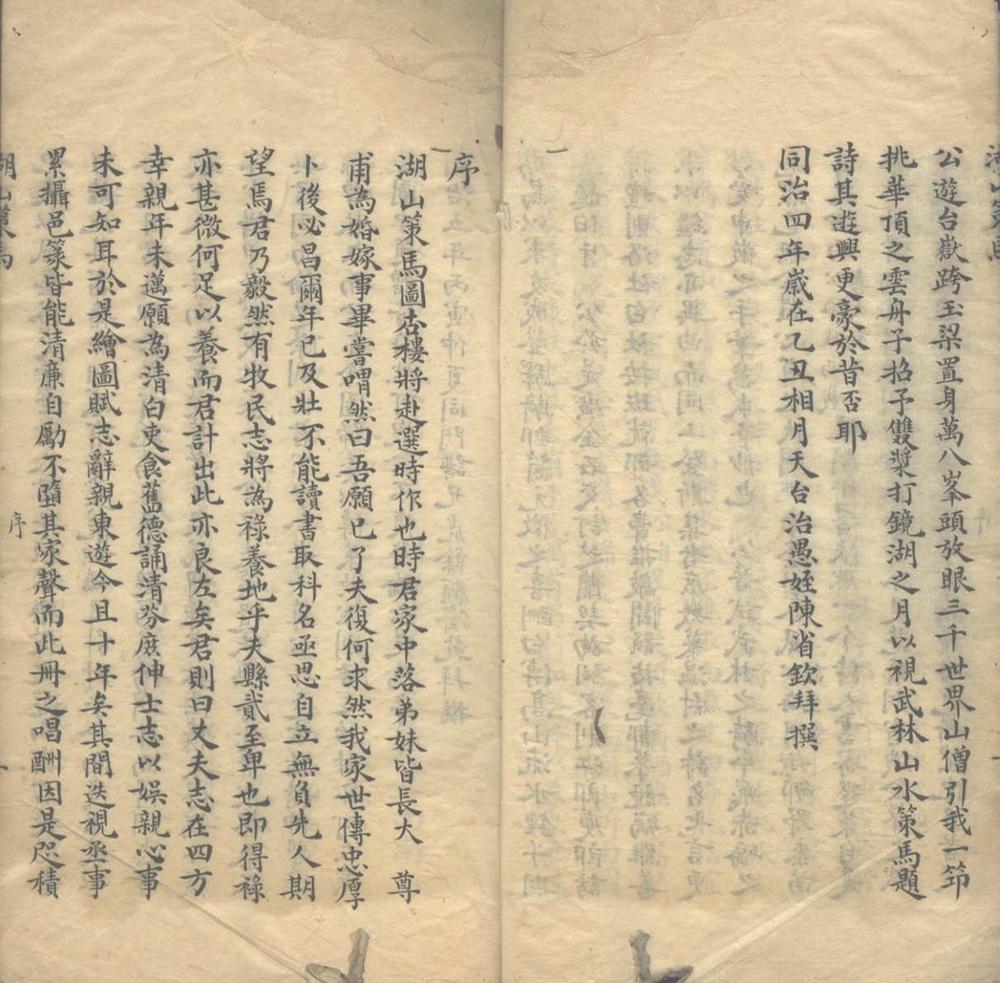 湖山策馬
公遊台嶽跨玉梁置身萬八峯頭放眼三千世界山僧引我一笻
挑華頂之雲舟子招予雙槳打鏡湖之月以視武林山水策馬題
詩其遊興更豪於昔否耶
同治四年歲在乙丑相月天台治愚姪陳省欽拜撰
序
湖山策馬圖杏樓將赴選時作也時君家中落弟妹皆長大 尊
甫為婚嫁事畢嘗喟然曰吾願已了夫復何求然我家世傳忠厚
卜後必昌爾年已及壯不能讀書取科名亟思自立無負先人期
望焉君乃毅然有牧民志將為祿養地乎夫縣貳至卑也即得祿
亦甚微何足以養而君計出此亦良左矣君則曰丈夫志在四方
幸親年未邁願為清白吏食舊德誦清芬庶伸士志以娛親心事
未可知耳於是繪圖賦志辭親東遊今且十年矣其間迭視丞事
累攝邑篆皆能清廉自勵不墮其家聲而此冊之唱酬因是咫積
湖山策馬
序
一